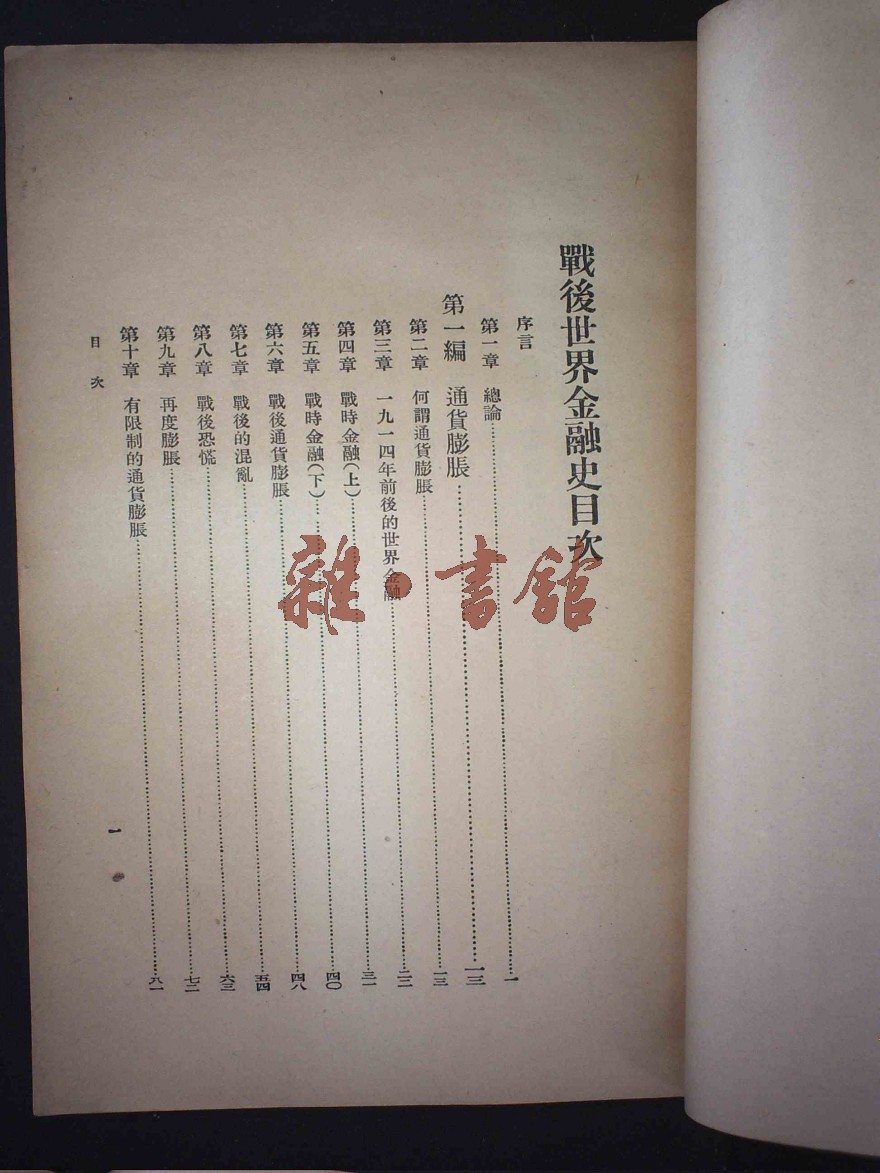 戰後世界金融史目次
序言
第一章 總論……一
第一編 通貨膨脹……一三
第二章 何謂通貨膨脹……一三
第三章 一九一四年前後的世界金融……二二
第四章 戰時金融(上)……三一
第五章 戰時金融(下)……四〇
第六章 戰後通貨膨脹……四八
第七章 戰後的混亂……五四
第八章 戰後恐慌……六三
第九章 再度膨脹……七二
第十章 有限制的通貨膨脹……八一
目次
一
雜·書館